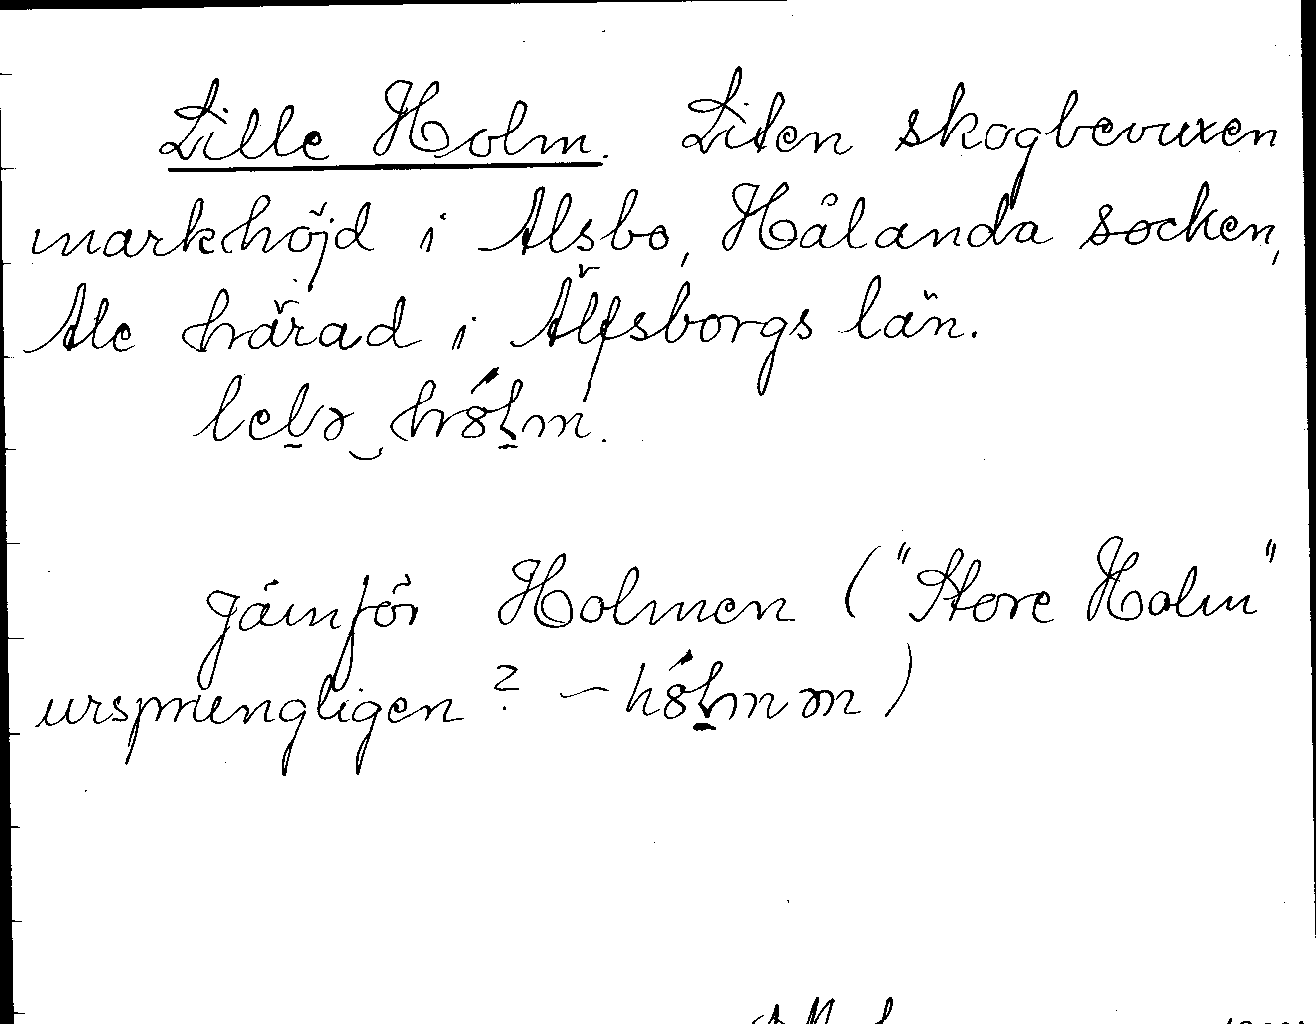 Lille Holm. Liten skogbevuxen
markhöjd i Alsbo, Hålanda socken,
Ale härad i Älfsborgs län.
jämför Holmen ("Store Holm"
ursprungligen? –